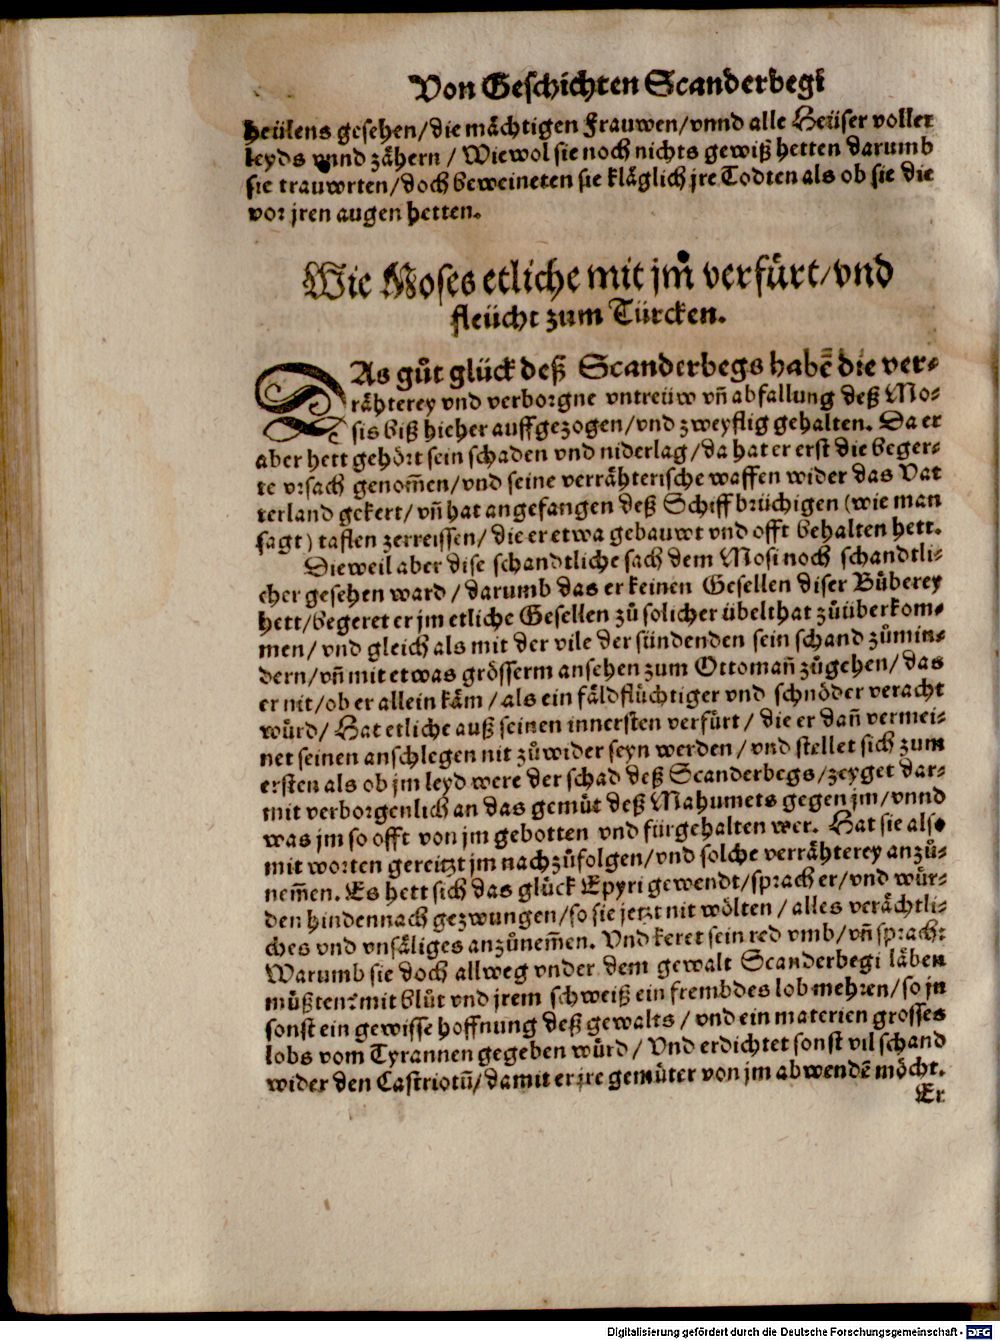 Von Geschichten Scanderbegi
heülens gesehen/die mächtigen Frauwen/vnnd alle Heüser voller
leyds vnnd zähern / Wiewol sie noch nichts gewiß hetten darumb
sie trauwrten/doch beweineten sie kläglich jre Todten als ob sie die
vor jren augen hetten.
Wie Moses etliche mit jm verfürt/vnd
fleücht zum Türcken.
DAs gůt glück deß Scanderbegs habē die ver-
rähterey vnd verborgne vntreüw vñ abfallung deß Mo-
sis biß hieher auffgezogen/vnd zweyflig gehalten. Da er
aber hett gehört sein schaden vnd niderlag/da hat er erst die beger-
te vrsach genom̃en/vnd seine verrähterische waffen wider das Vat
terland gekert/vñ hat angefangen deß Schiffbrüchigen (wie man
sagt) taflen zerreissen/die er etwa gebauwt vnd offt behalten hett.
Dieweil aber dise schandtliche sach dem Mosi noch schandtli-
cher gesehen ward/darumb das er keinen Gesellen diser Büberey
hett/begeret er jm etliche Gesellen zů solicher übelthat zůüberkom-
men/vnd gleich als mit der vile der sündenden sein schand zůmin-
dern/vñ mit etwas grösserm ansehen zum Ottomañ zůgehen/das
er nit/ob er allein käm/als ein fäldflüchtiger vnd schnöder veracht
würd/Hat etliche auß seinen innersten verfürt/die er dañ vermei-
net seinen anschlegen nit zůwider seyn werden/vnd stellet sich zum
ersten als ob jm leyd were der schad deß Scanderbegs/zeyget dar-
mit verborgenlich an das gemůt deß Mahumets gegen jm/vnnd
was jm so offt von jm gebotten vnd fürgehalten wer. Hat sie also
mit worten gereitzt jm nachzůfolgen/vnd solche verrähterey anzů-
nem̃en. Es hett sich das glück Epyri gewendt/sprach er/vnd wür-
den hindennach gezwungen/so sie jetzt nit wölten/alles verächtli-
ches vnd vnsäliges anzůnem̃en. Vnd keret sein red vmb/vñ sprach:
Warumb sie doch allweg vnder dem gewalt Scanderbegi läben
müßten? mit blůt vnd jrem schweiß ein frembdes lob mehren/so jn
sonst ein gewisse hoffnung deß gewalts/vnd ein materien grosses
lobs vom Tyrannen gegeben würd/Vnd erdichtet sonst vil schand
wider den Castriotū/damit er jre gemüter von jm abwendē möcht.
Er
Digitalisierung gefördert durch die Deutsche Forschungsgemeinschaft - DFG